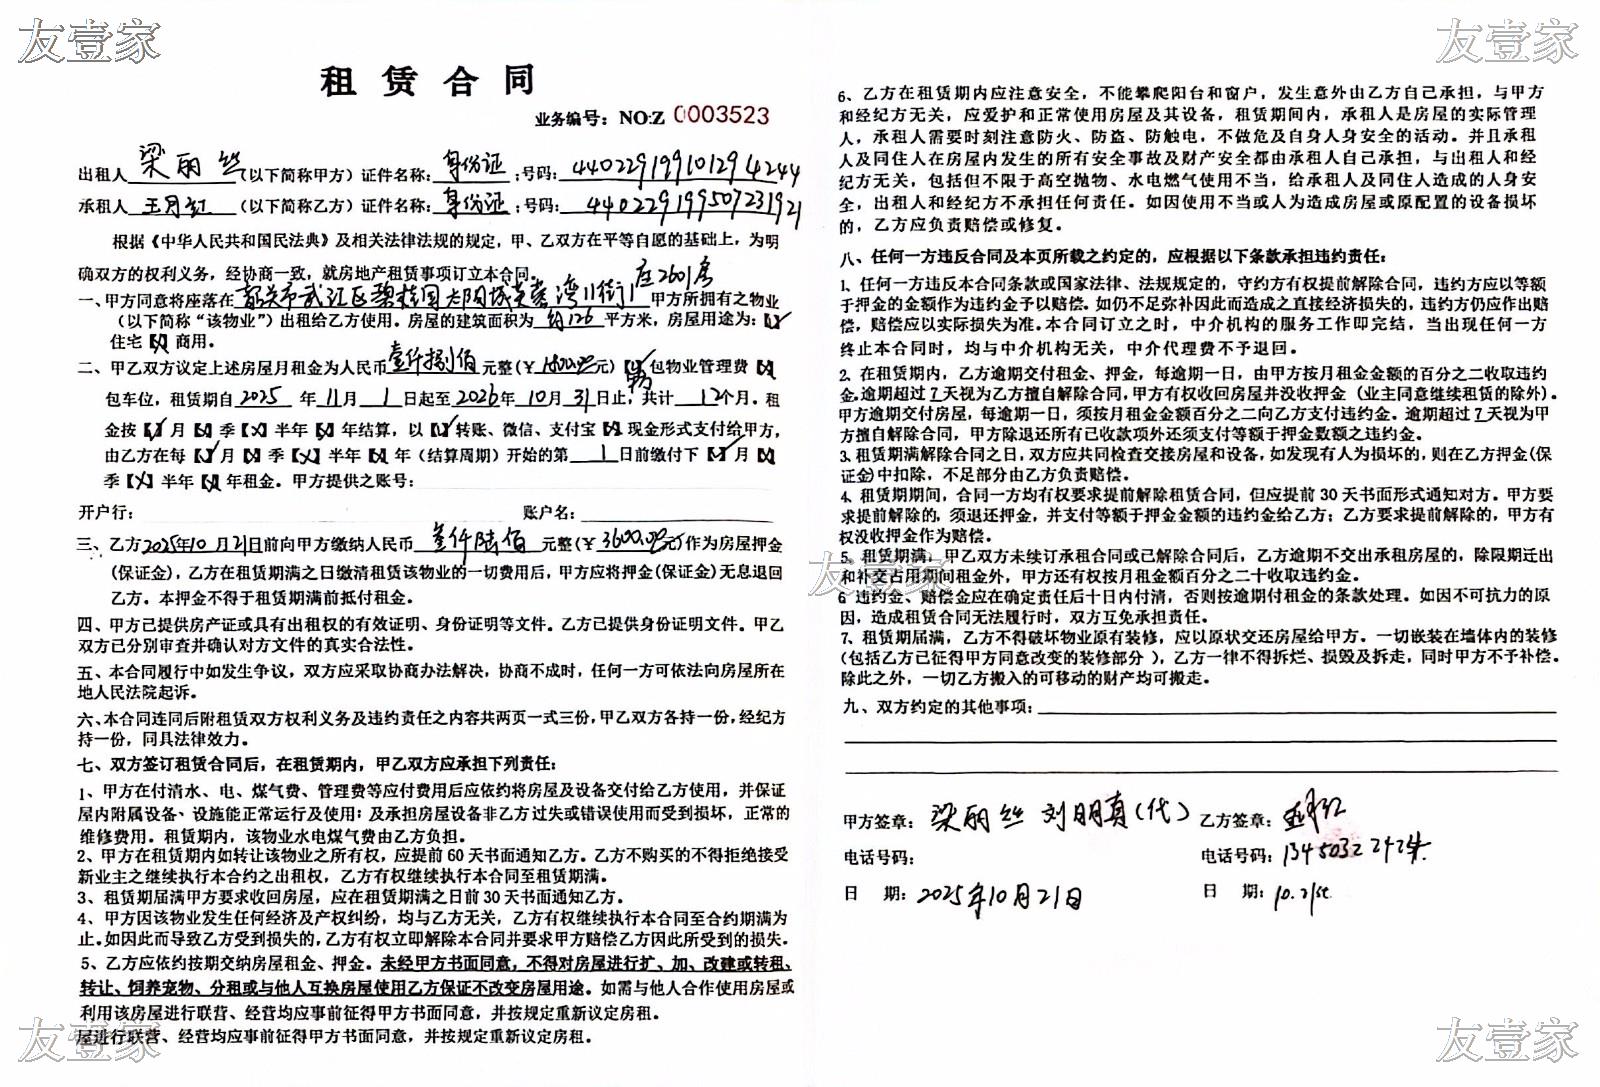 友壹家
友壹家
租赁合同
业务编号：NO:Z 0003523
出租人 梁丽丝 (以下简称甲方) 证件名称: 身份证 ;号码: 440229199101294244
承租人 王月红 (以下简称乙方) 证件名称: 身份证 ;号码: 440229199507231921
根据《中华人民共和国民法典》及相关法律法规的规定，甲、乙双方在平等自愿的基础上，为明
确双方的权利义务，经协商一致，就房地产租赁事项订立本合同。
座2601房
一、甲方同意将座落在 韶关市武江区碧桂园太阳城芙蓉湾11街11 甲方所拥有之物业
(以下简称“该物业”) 出租给乙方使用。房屋的建筑面积为 约126 平方米，房屋用途为:【√】
住宅【X】商用。
二、甲乙双方议定上述房屋月租金为人民币 壹仟捌佰 元整(￥ 1800.00 元)【√】包物业管理费【X】
包车位，租赁期自 2025 年 11 月 1 日起至 2026 年 10 月 31 日止，共计 12 个月。租
金按【√】月【X】季【X】半年【X】年结算，以【√】转账、微信、支付宝【X】现金形式支付给甲方，
由乙方在每【√】月【X】季【X】半年【X】年 (结算周期) 开始的第 1 日前缴付下【√】月【X】
季【X】半年【X】年租金。甲方提供之账号:
开户行: 账户名:
三、乙方 2025年10月21日前向甲方缴纳人民币 叁仟陆佰 元整(￥ 3600.00 元)作为房屋押金
(保证金)，乙方在租赁期满之日缴清租赁该物业的一切费用后，甲方应将押金(保证金)无息退回
乙方。本押金不得于租赁期满前抵付租金。
四、甲方已提供房产证或具有出租权的有效证明、身份证明等文件。乙方已提供身份证明文件。甲乙
双方已分别审查并确认对方文件的真实合法性。
五、本合同履行中如发生争议，双方应采取协商办法解决，协商不成时，任何一方可依法向房屋所在
地人民法院起诉。
六、本合同连同后附租赁双方权利义务及违约责任之内容共两页一式三份，甲乙双方各持一份，经纪方
持一份，同具法律效力。
七、双方签订租赁合同后，在租赁期内，甲乙双方应承担下列责任:
1、甲方在付清水、电、煤气费、管理费等应付费用后应依约将房屋及设备交付给乙方使用，并保证
屋内附属设备、设施能正常运行及使用；及承担房屋设备非乙方过失或错误使用而受到损坏，正常的
维修费用。租赁期内，该物业水电煤气费由乙方负担。
2、甲方在租赁期内如转让该物业之所有权，应提前60天书面通知乙方。乙方不购买的不得拒绝接受
新业主之继续执行本合约之出租权，乙方有权继续执行本合同至租赁期满。
3、租赁期届满甲方要求收回房屋，应在租赁期满之日前30天书面通知乙方。
4、甲方因该物业发生任何经济及产权纠纷，均与乙方无关，乙方有权继续执行本合同至合约期满为
止。如因此而导致乙方受到损失的，乙方有权立即解除本合同并要求甲方赔偿乙方因此所受到的损失。
5、乙方应依约按期交纳房屋租金、押金。未经甲方书面同意，不得对房屋进行扩、加、改建或转租、
转让、饲养宠物、分租或与他人互换房屋使用乙方保证不改变房屋用途。如需与他人合作使用房屋或
利用该房屋进行联营、经营均应事前征得甲方书面同意，并按规定重新议定房租。
屋进行联营、经营均应事前征得甲方书面同意，并按规定重新议定房租。
6、乙方在租赁期内应注意安全，不能攀爬阳台和窗户，发生意外由乙方自己承担，与甲方
和经纪方无关，应爱护和正常使用房屋及其设备，租赁期间内，承租人是房屋的实际管理
人，承租人需要时刻注意防火、防盗、防触电，不做危及自身人身安全的活动。并且承租
人及同住人在房屋内发生的所有安全事故及财产安全都由承租人自己承担，与出租人和经
纪方无关，包括但不限于高空抛物、水电燃气使用不当，给承租人及同住人造成的人身安
全，出租人和经纪方不承担任何责任。如因使用不当或人为造成房屋或原配置的设备损坏
的，乙方应负责赔偿或修复。
八、任何一方违反合同及本页所载之约定的，应根据以下条款承担违约责任:
1、任何一方违反本合同条款或国家法律、法规规定的，守约方有权提前解除合同，违约方应以等额
于押金的金额作为违约金予以赔偿。如仍不足弥补因此而造成之直接经济损失的，违约方仍应作出赔
偿，赔偿应以实际损失为准。本合同订立之时，中介机构的服务工作即完结，当出现任何一方
终止本合同时，均与中介机构无关，中介代理费不予退回。
2、在租赁期内，乙方逾期交付租金、押金，每逾期一日，由甲方按月租金金额的百分之二收取违约
金。逾期超过7天视为乙方擅自解除合同，甲方有权收回房屋并没收押金 (业主同意继续租赁的除外)。
甲方逾期交付房屋，每逾期一日，须按月租金金额百分之二向乙方支付违约金。逾期超过7天视为甲
方擅自解除合同，甲方除退还所有已收款项外还须支付等额于押金数额之违约金。
3、租赁期满解除合同之日，双方应共同检查交接房屋和设备，如发现有人为损坏的，则在乙方押金(保
证金)中扣除，不足部分由乙方负责赔偿。
4、租赁期期间，合同一方均有权要求提前解除租赁合同，但应提前30天书面形式通知对方。甲方要
求提前解除的，须退还押金，并支付等额于押金金额的违约金给乙方；乙方要求提前解除的，甲方有
权没收押金作为赔偿。
友壹家
5、租赁期满，甲乙双方未续订承租合同或已解除合同后，乙方逾期不交出承租房屋的，除限期迁出
和补交占用期间租金外，甲方还有权按月租金额百分之二十收取违约金。
6 违约金、赔偿金应在确定责任后十日内付清，否则按逾期付租金的条款处理。如因不可抗力的原
因，造成租赁合同无法履行时，双方互免承担责任。
7、租赁期届满，乙方不得破坏物业原有装修，应以原状交还房屋给甲方。一切嵌装在墙体内的装修
(包括乙方已征得甲方同意改变的装修部分 )，乙方一律不得拆烂、损毁及拆走，同时甲方不予补偿。
除此之外，一切乙方搬入的可移动的财产均可搬走。
九、双方约定的其他事项:
甲方签章: 梁丽丝 刘明真(代)
电话号码:
日 期: 2025年10月21日
乙方签章: 王月红
电话号码: 13450322424
日 期: 10.21st.
友壹家
友壹家